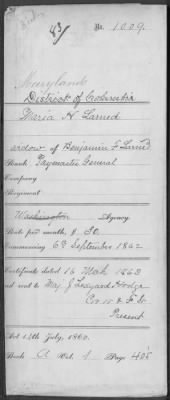 83/
No. 1009.
Maryland
District of Columbia
Maria H Larned
widow of Benjamin F Larned
Rank Paymaster General
Company
Regiment
Washington Agency
Rate per month, $ 30
Commencing 6th September 1862
Certificate dated 16 Mch 1863
and sent to
Present
Act 14th July, 1862.
Book A Vol. 1 Page 405